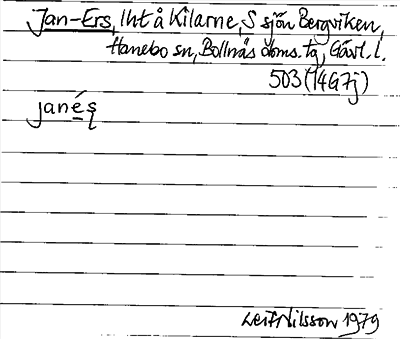 Jan-Ers, lht å Kilarne, S sjön Bergviken,
Hanebo sn, Bollnäs doms. tg, Gävl. l.
503 (14G7j)
janés
Leif Nilsson 1979